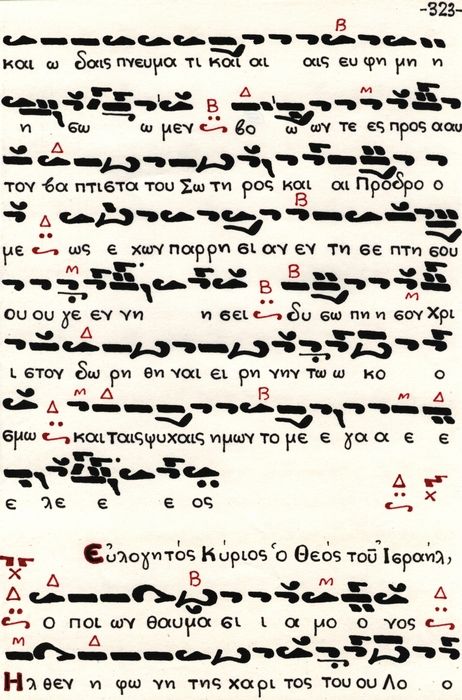 -323-
και ω δαις πνευμα τι και αι αις ευ φη μη η
η σω ω μεν βο ω ων τε ες προς σου
τον βα πτιστα του Σω τη ρος και αι Προδρο ο
με ως ε χων παρρη σι αν εν τη σε πτη σου
ου ου γε εν νη η σει δυ σω πη η σον Χρι
ι στον δω ρη θη ναι ει ρη νην τω ω κο ο
σμω και ταις ψυχαις ημων το με ε γα α ε ε
ε λε ε ε ος
Εὐλογητός Κύριος ὁ Θεός τοῦ Ἰσραήλ,
ο ποι ων θαυμα σι ι α μο ο νος
Ηλ θεν η φω νη της χαρι τος του ου Λο ο